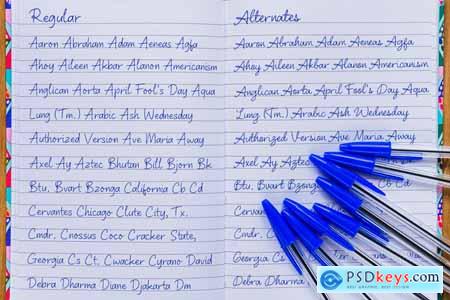 Regular
Aaron Abraham Adam Aeneas Agfa
Ahoy Aileen Akbar Alanon Americanism
Anglican Aorta April Fool's Day Aqua
Lung (Tm.) Arabic Ash Wednesday
Authorized Version Ave Maria Away
Axel Ay Aztec Bhutan Bill Bjorn Bk
Btu. Bvart Bzonga California Cb Cd
Cervantes Chicago Clute City, Tx.
Cmdr. Cnossus Coco Cracker State,
Georgia Cs Ct. Cwacker Cyrano David
Debra Dharma Diane Djakarta Dm
Alternates
Aaron Abraham Adam Aeneas Agfa
Ahoy Aileen Akbar Alanon Americanism
Anglican Aorta April Fool's Day Aqua
Lung (Tm.) Arabic Ash Wednesday
Authorized Version Ave Maria Away
Axel Ay Aztec
Btu. Bvart Bzonga Cb Cd
Cmdr.
Georgia Cs
Debra Dharma
PSDkeys.com